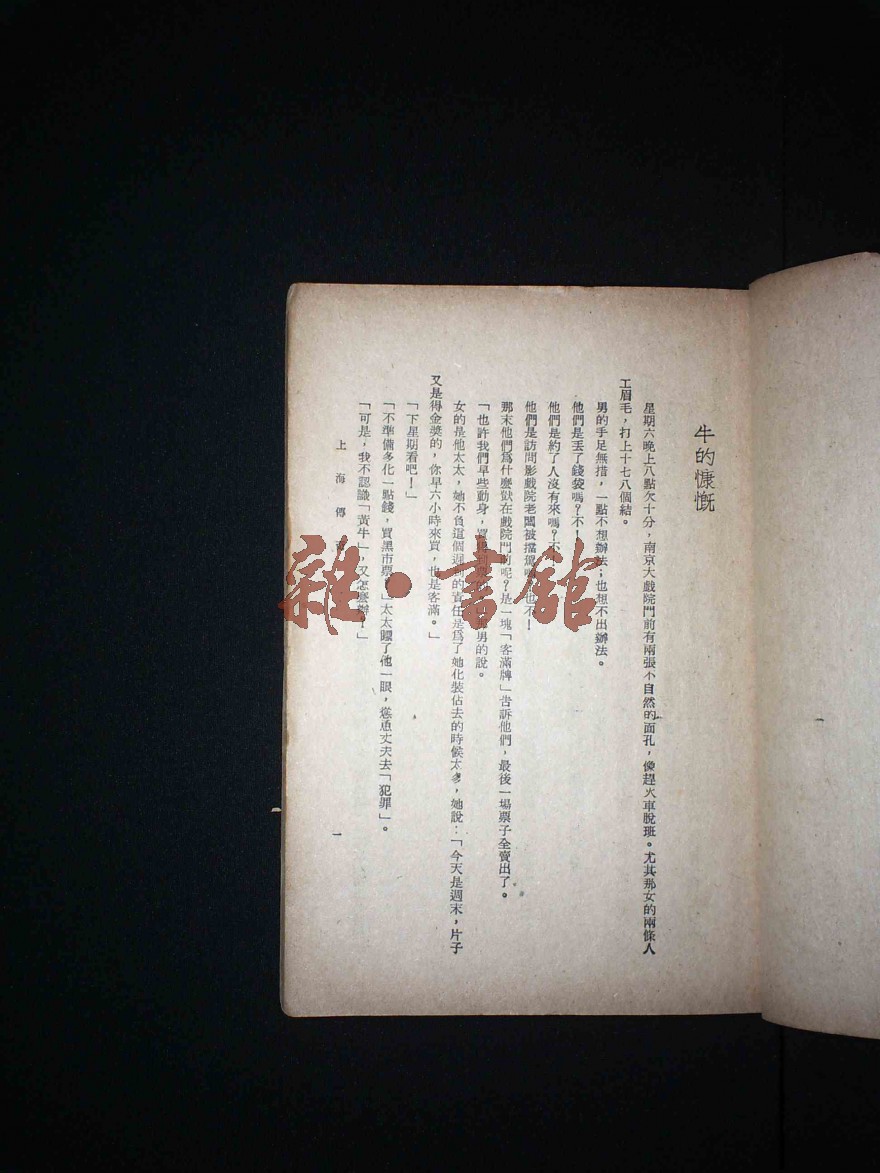 牛的慷慨
星期六晚上八點欠十分，南京大戲院門前有兩張不自然的面孔，像趕火車脫班。尤其那女的兩條人
工眉毛，打上十七八個結。
男的手足無措，一點不想辦法；也想不出辦法。
他們是丟了錢袋嗎？不！
他們是約了人沒有來嗎？不
他們是訪問影戲院老闆被擋駕嗎？也不！
那末他們爲什麼獃在戲院門前呢？是一塊「客滿牌」告訴他們，最後一場票子全賣出了。
「也許我們早些動身，買得到 男的說。
女的是他太太，她不負這個遲到的責任是爲了她化裝佔去的時候太多，她說：「今天是週末，片子
又是得金獎的，你早六小時來買，也是客滿。」
「下星期看吧！」
「不準備多化一點錢，買黑市票 」太太蹬了他一眼，慫恿丈夫去「犯罪」。
「可是，我不認識「黃牛」，又怎麼辦！」
上海傳
一
一
雜·書館